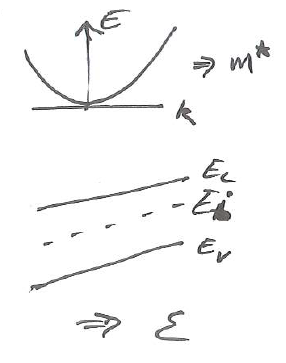 E
⇒ m*
k
E_c
E_i
E_v
⇒ ℰ